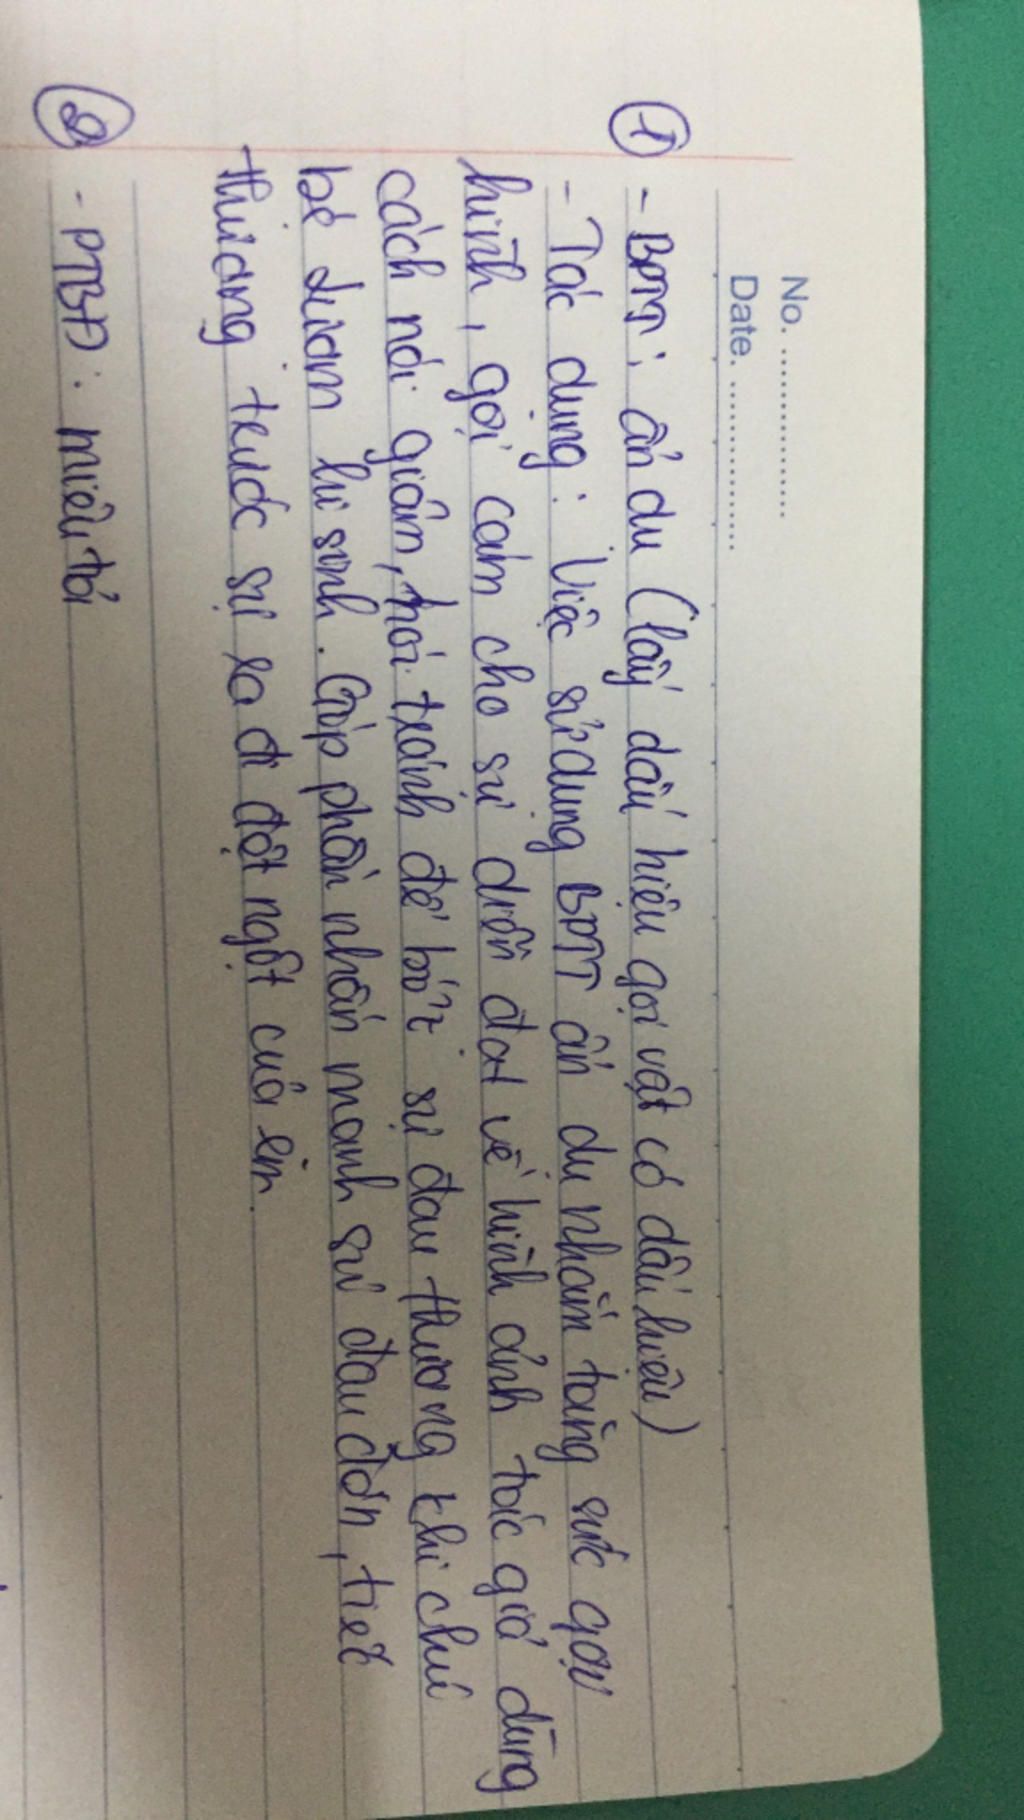 No. ................
Date. ................
① - BPTT : ẩn dụ (lấy dấu hiệu gọi vật có dấu hiệu)
- Tác dụng : Việc sử dụng BPTT ẩn dụ nhằm tăng sức gợi
hình, gợi cảm cho sự diễn đạt về hình ảnh tác giả dùng
cách nói giảm, nói tránh để bớt sự đau thương khi chú
bé Lượm hi sinh. Góp phần nhấn mạnh sự đau đớn, tiếc
thương trước sự ra đi đột ngột của em.
② - PTBĐ : miêu tả